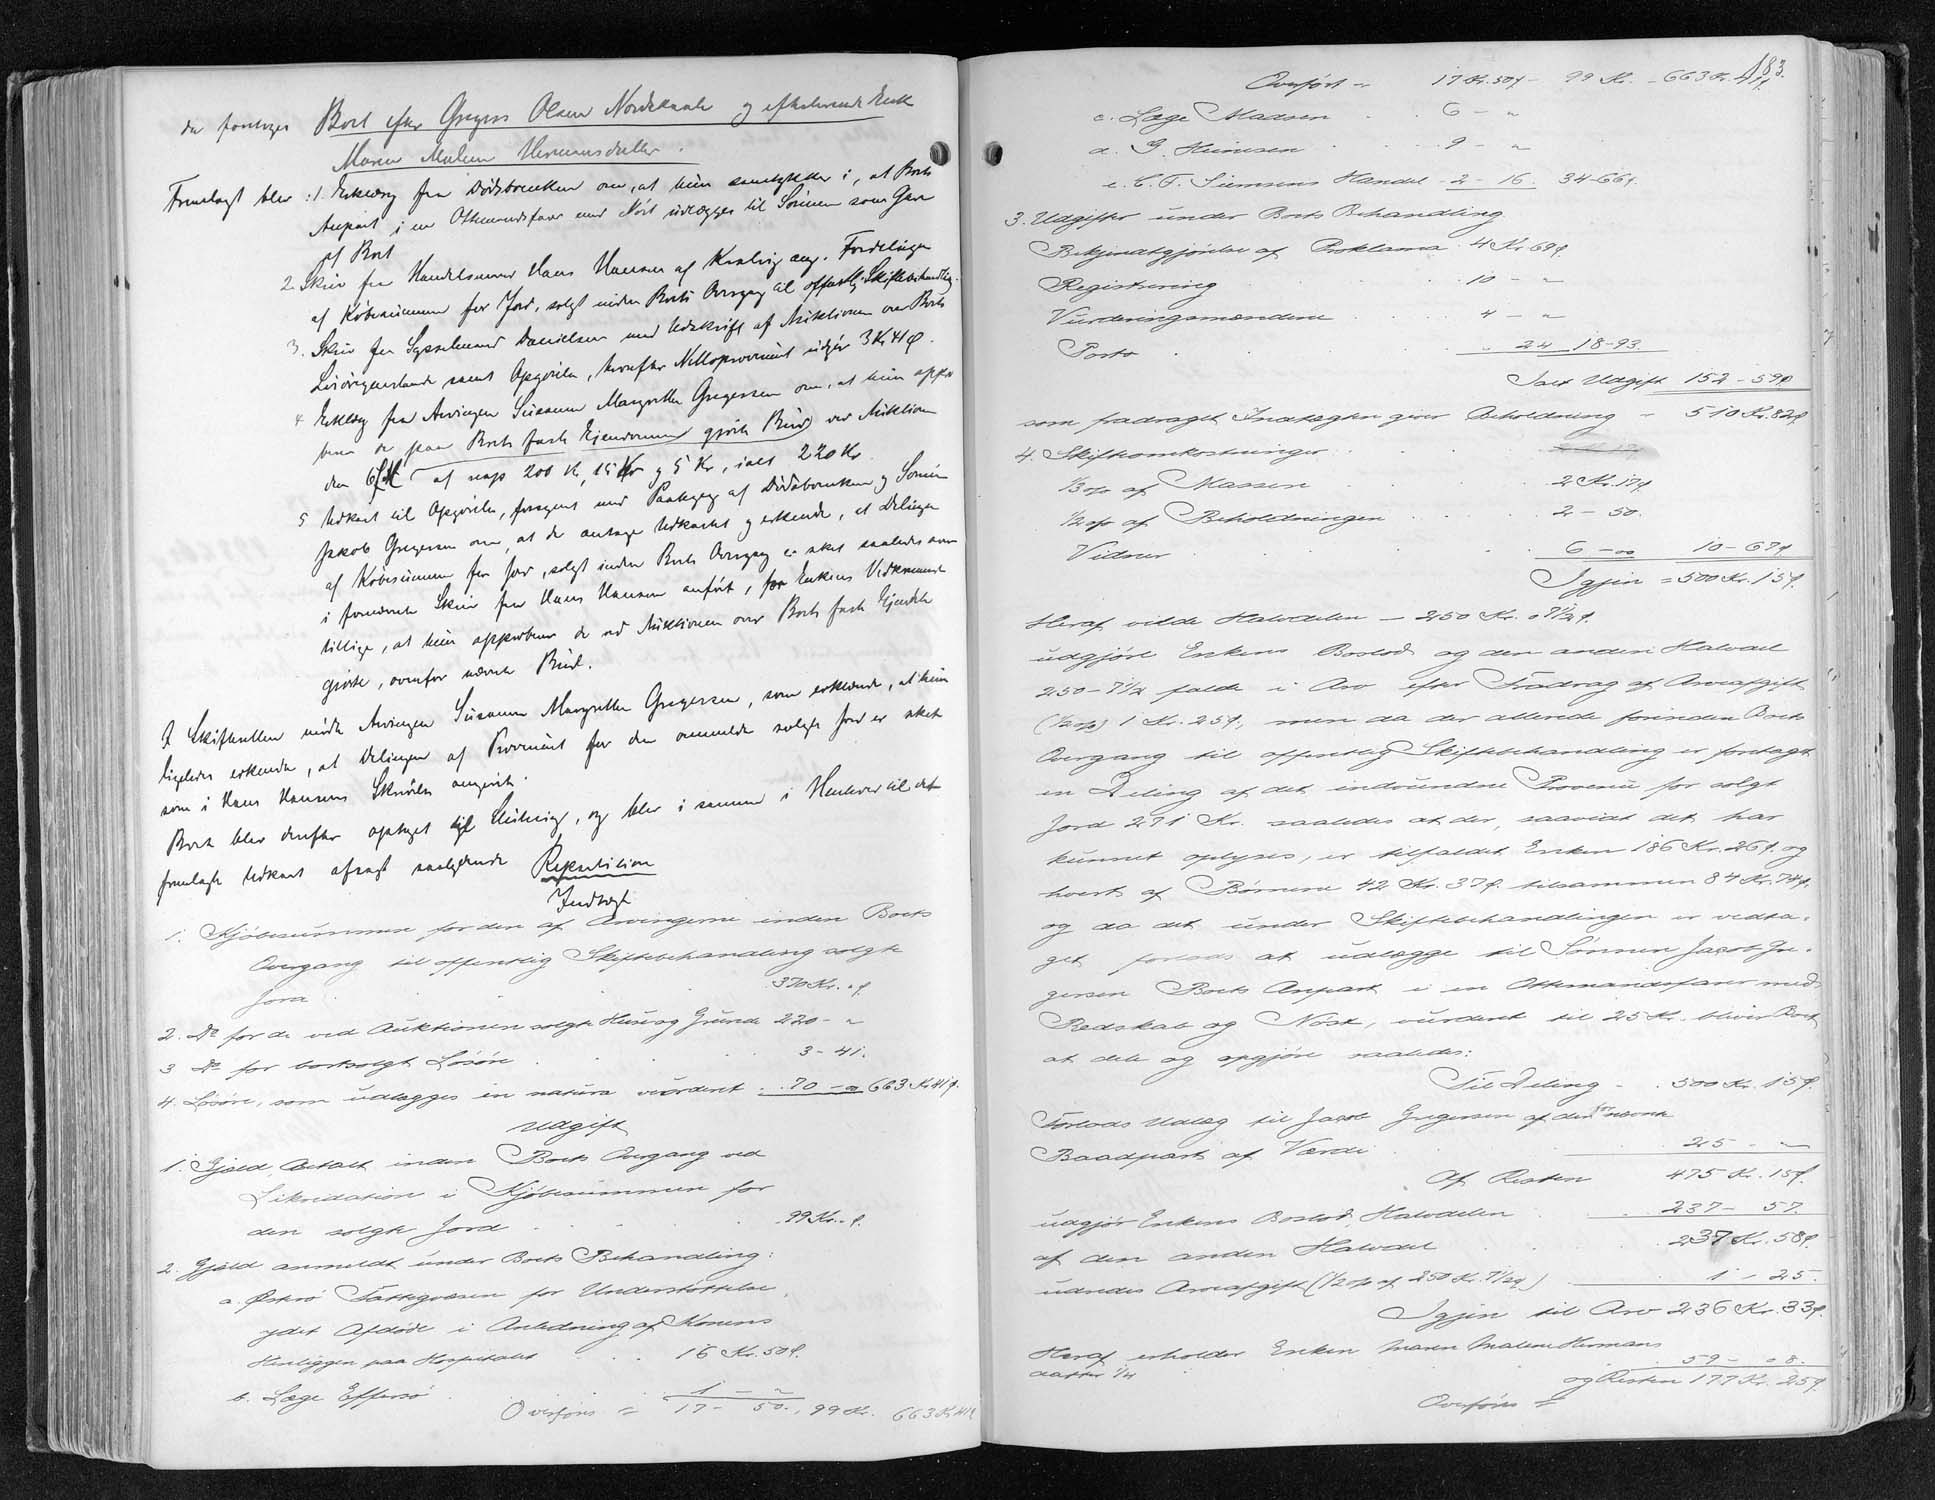 da foretoges Boet efter Gregers Olsen Nordskaale og efterlevende Enke
Maren Malene Hermansdatter.
Fremlagt blev: 1. Erklæring fra Dødsboenken om, at hun samtykker i, at Boets
Anpart i en Ottemandsfarer med Nøst udlægges til Sønnen som Gave
af Boet
2. Skriv fra Handelsmand Hans Hansen af ang. Fordelingen
af Købesummen for Jord, solgt inden Boets Overgang til offentlig Skiftebehandling.
3. Skriv fra Sysselmand Danielsen med Udskrift af Auktionen over Boets
Løsøregenstande samt Opgørelse, hvorefter Nettoprovenuet udgør 3 Kr 41 ø.
4 Erklæring fra Arvingen Susanne Margrethe Gregersen om, at hun appro
berer de paa Boets faste Ejendomme gjorte Bud ved Auktionen
den af resp 200 Kr, 15 Kr og 5 Kr, ialt 220 Kr.
5 Udkast til Opgørelse, forsynet med Paategning af Dødsboenken og Sønnen
Jakob Gregersen om, at de antage Udkastet og erkende, at Delingen
af Købesummen for Jord, solgt inden Boets Overgang er sket saaledes som
i fornævnte Skriv fra Hans Hansen anført, for Enkens Vedkommende
tillige, at hun approberer de ved Auktionen over Boets faste Ejendele
gjorte, ovenfor nævnte Bud.
I Skifteretten mødte Arvingen Susanne Margrethe Gregersen, som erklærede, at hun
ligeledes erkendte, at Delingen af Provenuet for den ommeldte solgte Jord er sket
som i Hans Hansens Skrivelse angivet.
Boet blev derefter optaget til Slutning, og blev i samme i Henhold til det
fremlagte Udkast afsagt saalydende Repartition
Indtægt
1. Kjøbesummen for den af Arvingerne inden Boets
Overgang til offentlig Skiftebehandling solgte
Jord . . . 370 Kr. " ø.
2. Do for de ved Auktionen solgte Huse og Grunde 220 - "
3 Do for bortsolgt Løsøre . . . 3 - 41.
4. Løsøre, som udlægges in natura vurderet . 70 - " 663 Kr 41 ø.
Udgift
1. Gjæld, betalt inden Boets Overgang ved
Likvidation i Kjøbesummen for
den solgte Jord . . . 99 Kr. " ø.
2. Gjæld anmeldt under Boets Behandling:
a. Østerø Fattigvæsen for Understøttelse,
ydet Afdøde i Anledning af Konens
Henliggen paa Hospitalet . . 16 Kr. 50 ø.
b. Læge Effersø . 1 - "
Overføres = 17 - 50. , 99 Kr. 663 Kr 41 ø
183.
Overført = 17 Kr. 50 ø - 99 Kr. - 663 Kr. 41 ø.
c. Læge Madsen . . 6 - "
d. J. . . 9 - "
e. C. F. Siemsens Handel - 2 - 16. 34-66 ø.
3. Udgifter under Boets Behandling
Bekjendtgjørelse af Proklama . 4 Kr 69 ø.
Registrering . . . 10 - "
Vurderingsmændene . . . 4 - "
Porto . . . " 24 18-93.
Ialt Udgift 152 - 59 ø
som fradraget Indtægten giver Beholdning = 510 Kr. 82 ø.
4. Skifteomkostninger . . .
1/3 o/o af Massen . . . 2 Kr. 17 ø.
1/2 o/o af Beholdningen . . . 2 - 50.
Vidner . . . 6 - " 10 - 67 ø
Igjen = 500 Kr. 15 ø.
Heraf vilde Halvdelen — 250 Kr. 07 1/2 ø.
udgjøre Enkens Boslod og den anden Halvdel
250 - 7 1/2 falde i Arv efter Fradrag af Arveafgift
(1/2 o/o) 1 Kr. 25 ø., men da der allerede forinden Boets
Overgang til offentlig Skiftebehandling er foretaget
en Deling af det indvundne Provenu for solgt
Jord 271 Kr. saaledes at der, saavidt det har
kunnet oplyses, er tilfaldet Enken 186 Kr. 26 ø. og
hvert af Børnene 42 Kr. 37 ø. tilsammen 84 Kr. 74 ø.
og da det under Skiftebehandlingen er vedta-
get forlods at udlægge til Sønnen Jacob Gre-
gersen Boets Anpart i en Ottemandsfarer med
Redskab og Nøst, vurderet til 25 Kr. bliver Boet
at dele og opgjøre saaledes:
Til Deling - . 500 Kr. 15 ø.
Forlods Udlæg til Jacob Gregersen af den for nævnte
Baadpart af Værdi . . 25 - "
Af Resten 475 Kr. 15 ø.
udgjør Enkens Boslod, Halvdelen . . 237 - 57.
af den anden Halvdel . . . 237 Kr. 58 ø.
udredes Arveafgift (1/2 o/o af 250 Kr. 7 1/2 ø) . . 1 - 25.
Igjen til Arv 236 Kr. 33 ø.
Heraf erholder Enken Maren Malene Hermans
datter 1/4 . . 59 - 08.
og Resten 177 Kr. 25 ø.
Overføres =